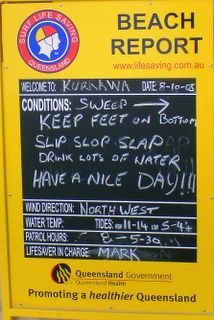 SURF LIFE SAVING
QUEENSLAND
BEACH
REPORT
www.lifesaving.com.au
WELCOME TO: KURRAWA DATE: 8-10-05
CONDITIONS: SWEEP →
KEEP FEET ON BOTTOM
SLIP SLOP SLAP
DRINK LOTS OF WATER
HAVE A NICE DAY!!!
WIND DIRECTION: NORTH WEST
WATER TEMP: TIDES:
PATROL HOURS: 8-5-30
LIFESAVER IN CHARGE: MARK
Queensland Government
Queensland Health
Promoting a healthier Queensland